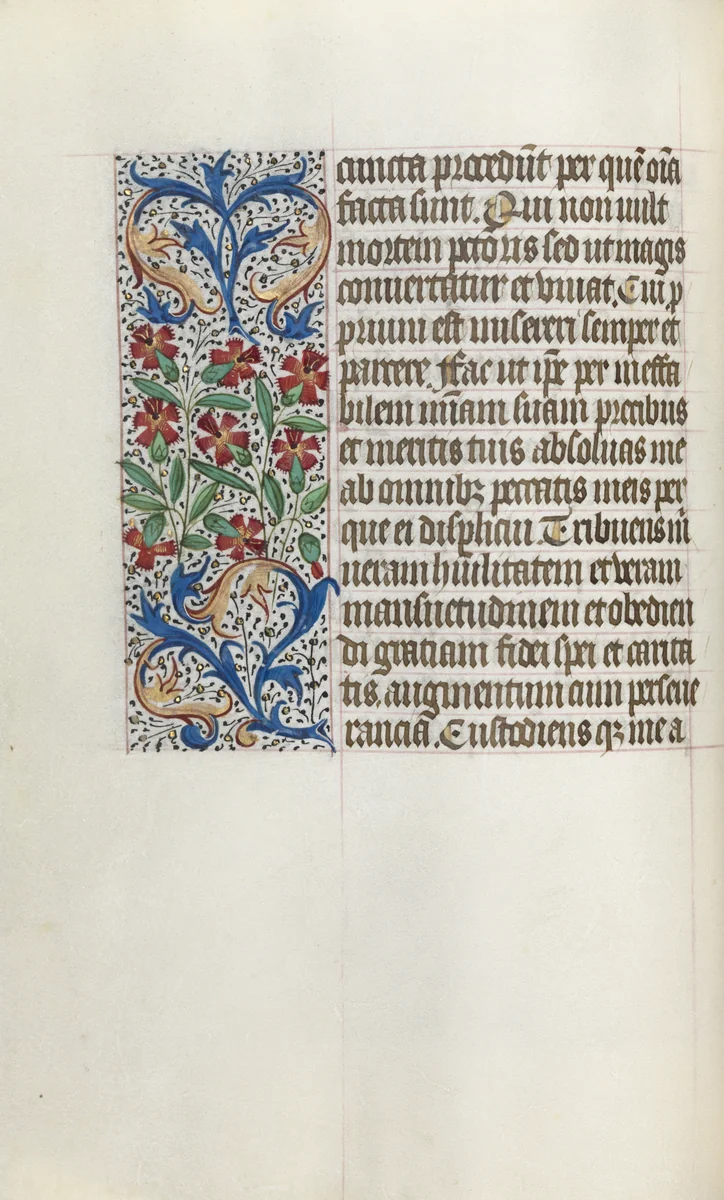 cuncta procedūt per quē oīa
facta sunt. Qui non uult
mortem pctōris sed ut magis
conuertatur et viuat. Cui p
prium est misereri semper et
parcere. Fac ut ip̄e per ineffa
bilem mīam suam precibus
et meritis tuis absoluas me
ab omnibꝫ peccatis meis per
que ei displicui Tribuens m̄
ueram hūilitatem et veram
mansuetudinem et obedien
di gratiam fidei spei et carita
tis. augmentum cum perseue
rancia. Custodiens qꝫ me a